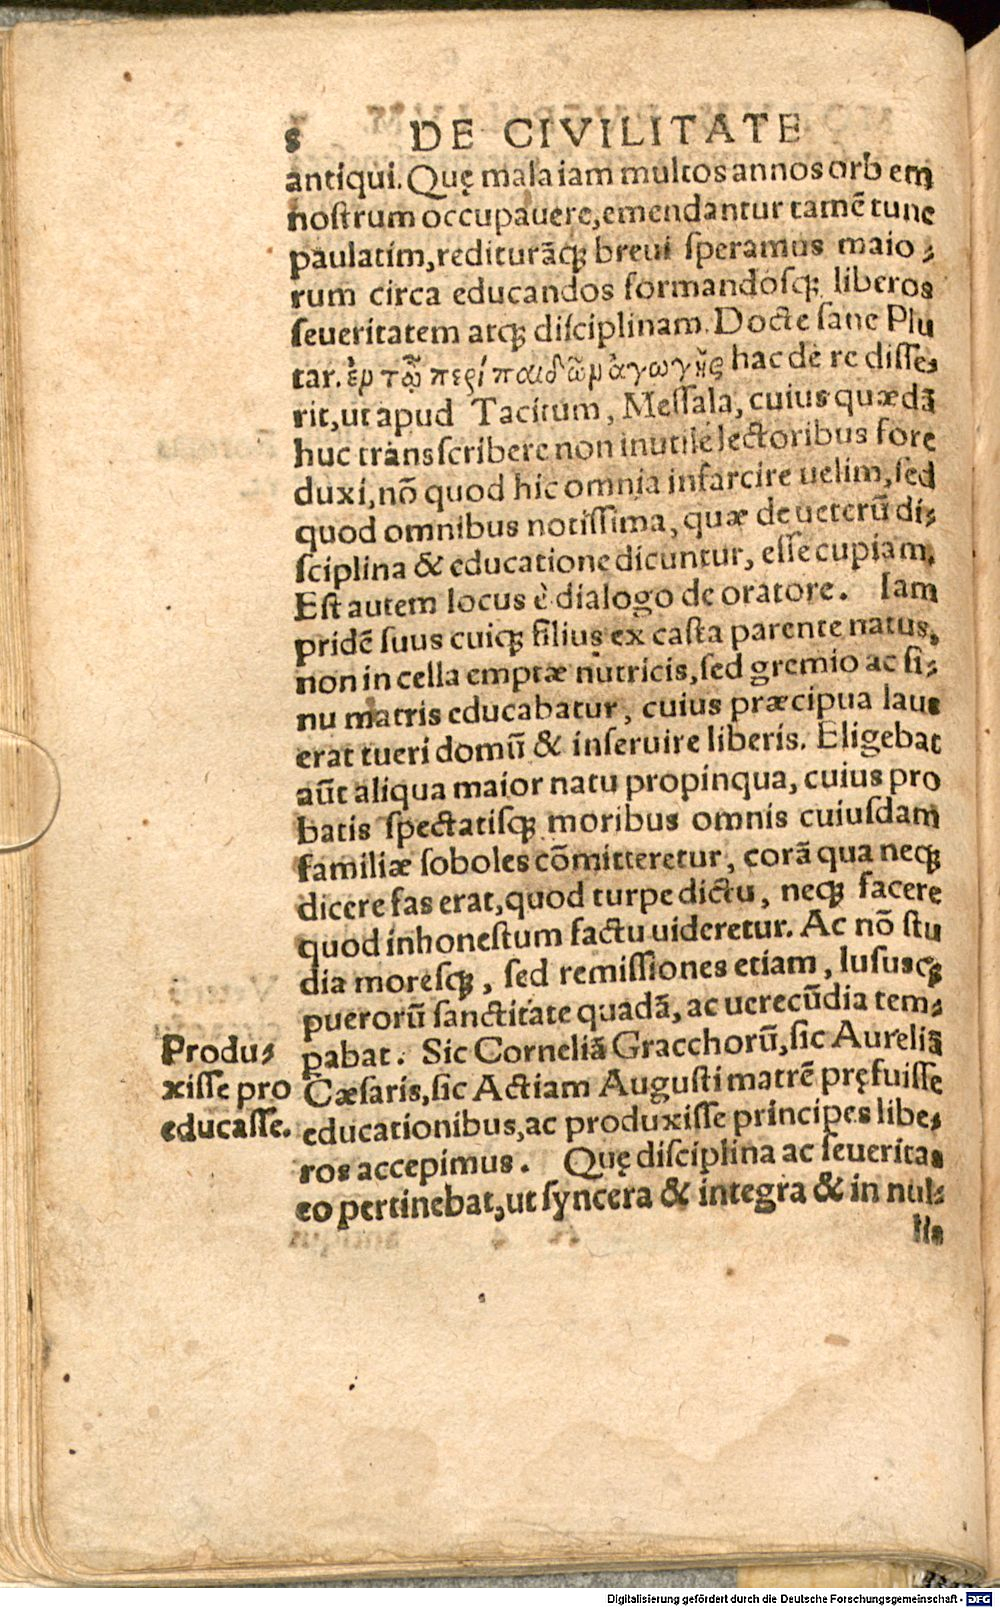 8 DE CIVILITATE
antiqui. Quę mala iam multos annos orbem
nostrum occupauere, emendantur tamē tunc
paulatim, rediturāq; breui speramus maio-
rum circa educandos formandosq; liberos
seueritatem atq; disciplinam. Docte sane Plu
tar. ἐν τῷ περὶ παιδῶν ἀγωγῆς hac de re disse-
rit, ut apud Tacitum, Messala, cuius quædā
huc transscribere non inutile lectoribus fore
duxi, nō quod hic omnia infarcire uelim, sed
quod omnibus notissima, quæ de ueterū di-
sciplina & educatione dicuntur, esse cupiam.
Est autem locus è dialogo de oratore. Iam
pridē suus cuiq; filius ex casta parente natus,
non in cella emptæ nutricis, sed gremio ac si-
nu matris educabatur, cuius præcipua laus
erat tueri domū & inseruire liberis. Eligebat
aūt aliqua maior natu propinqua, cuius pro
batis spectatisq; moribus omnis cuiusdam
familiæ soboles cōmitteretur, corā qua neq;
dicere fas erat, quod turpe dictu, neq; facere
quod inhonestum factu uideretur. Ac nō stu
dia moresq;, sed remissiones etiam, lususq;
puerorū sanctitate quadā, ac uerecūdia tem-
pabat. Sic Corneliā Gracchorū, sic Aureliā
Cæsaris, sic Actiam Augusti matrē pręfuisse
educationibus, ac produxisse principes libe-
ros accepimus. Quę disciplina ac seueritas
eo pertinebat, ut syncera & integra & in nul-
lis
Produ-
xisse pro
educasse.
Digitalisierung gefördert durch die Deutsche Forschungsgemeinschaft - DFG